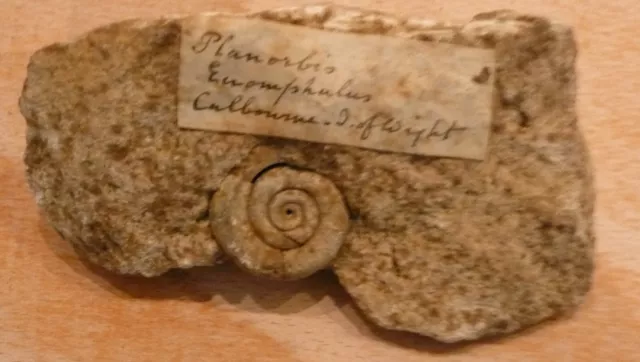 Planorbis
Euomphalus
Calbourne. I. of Wight